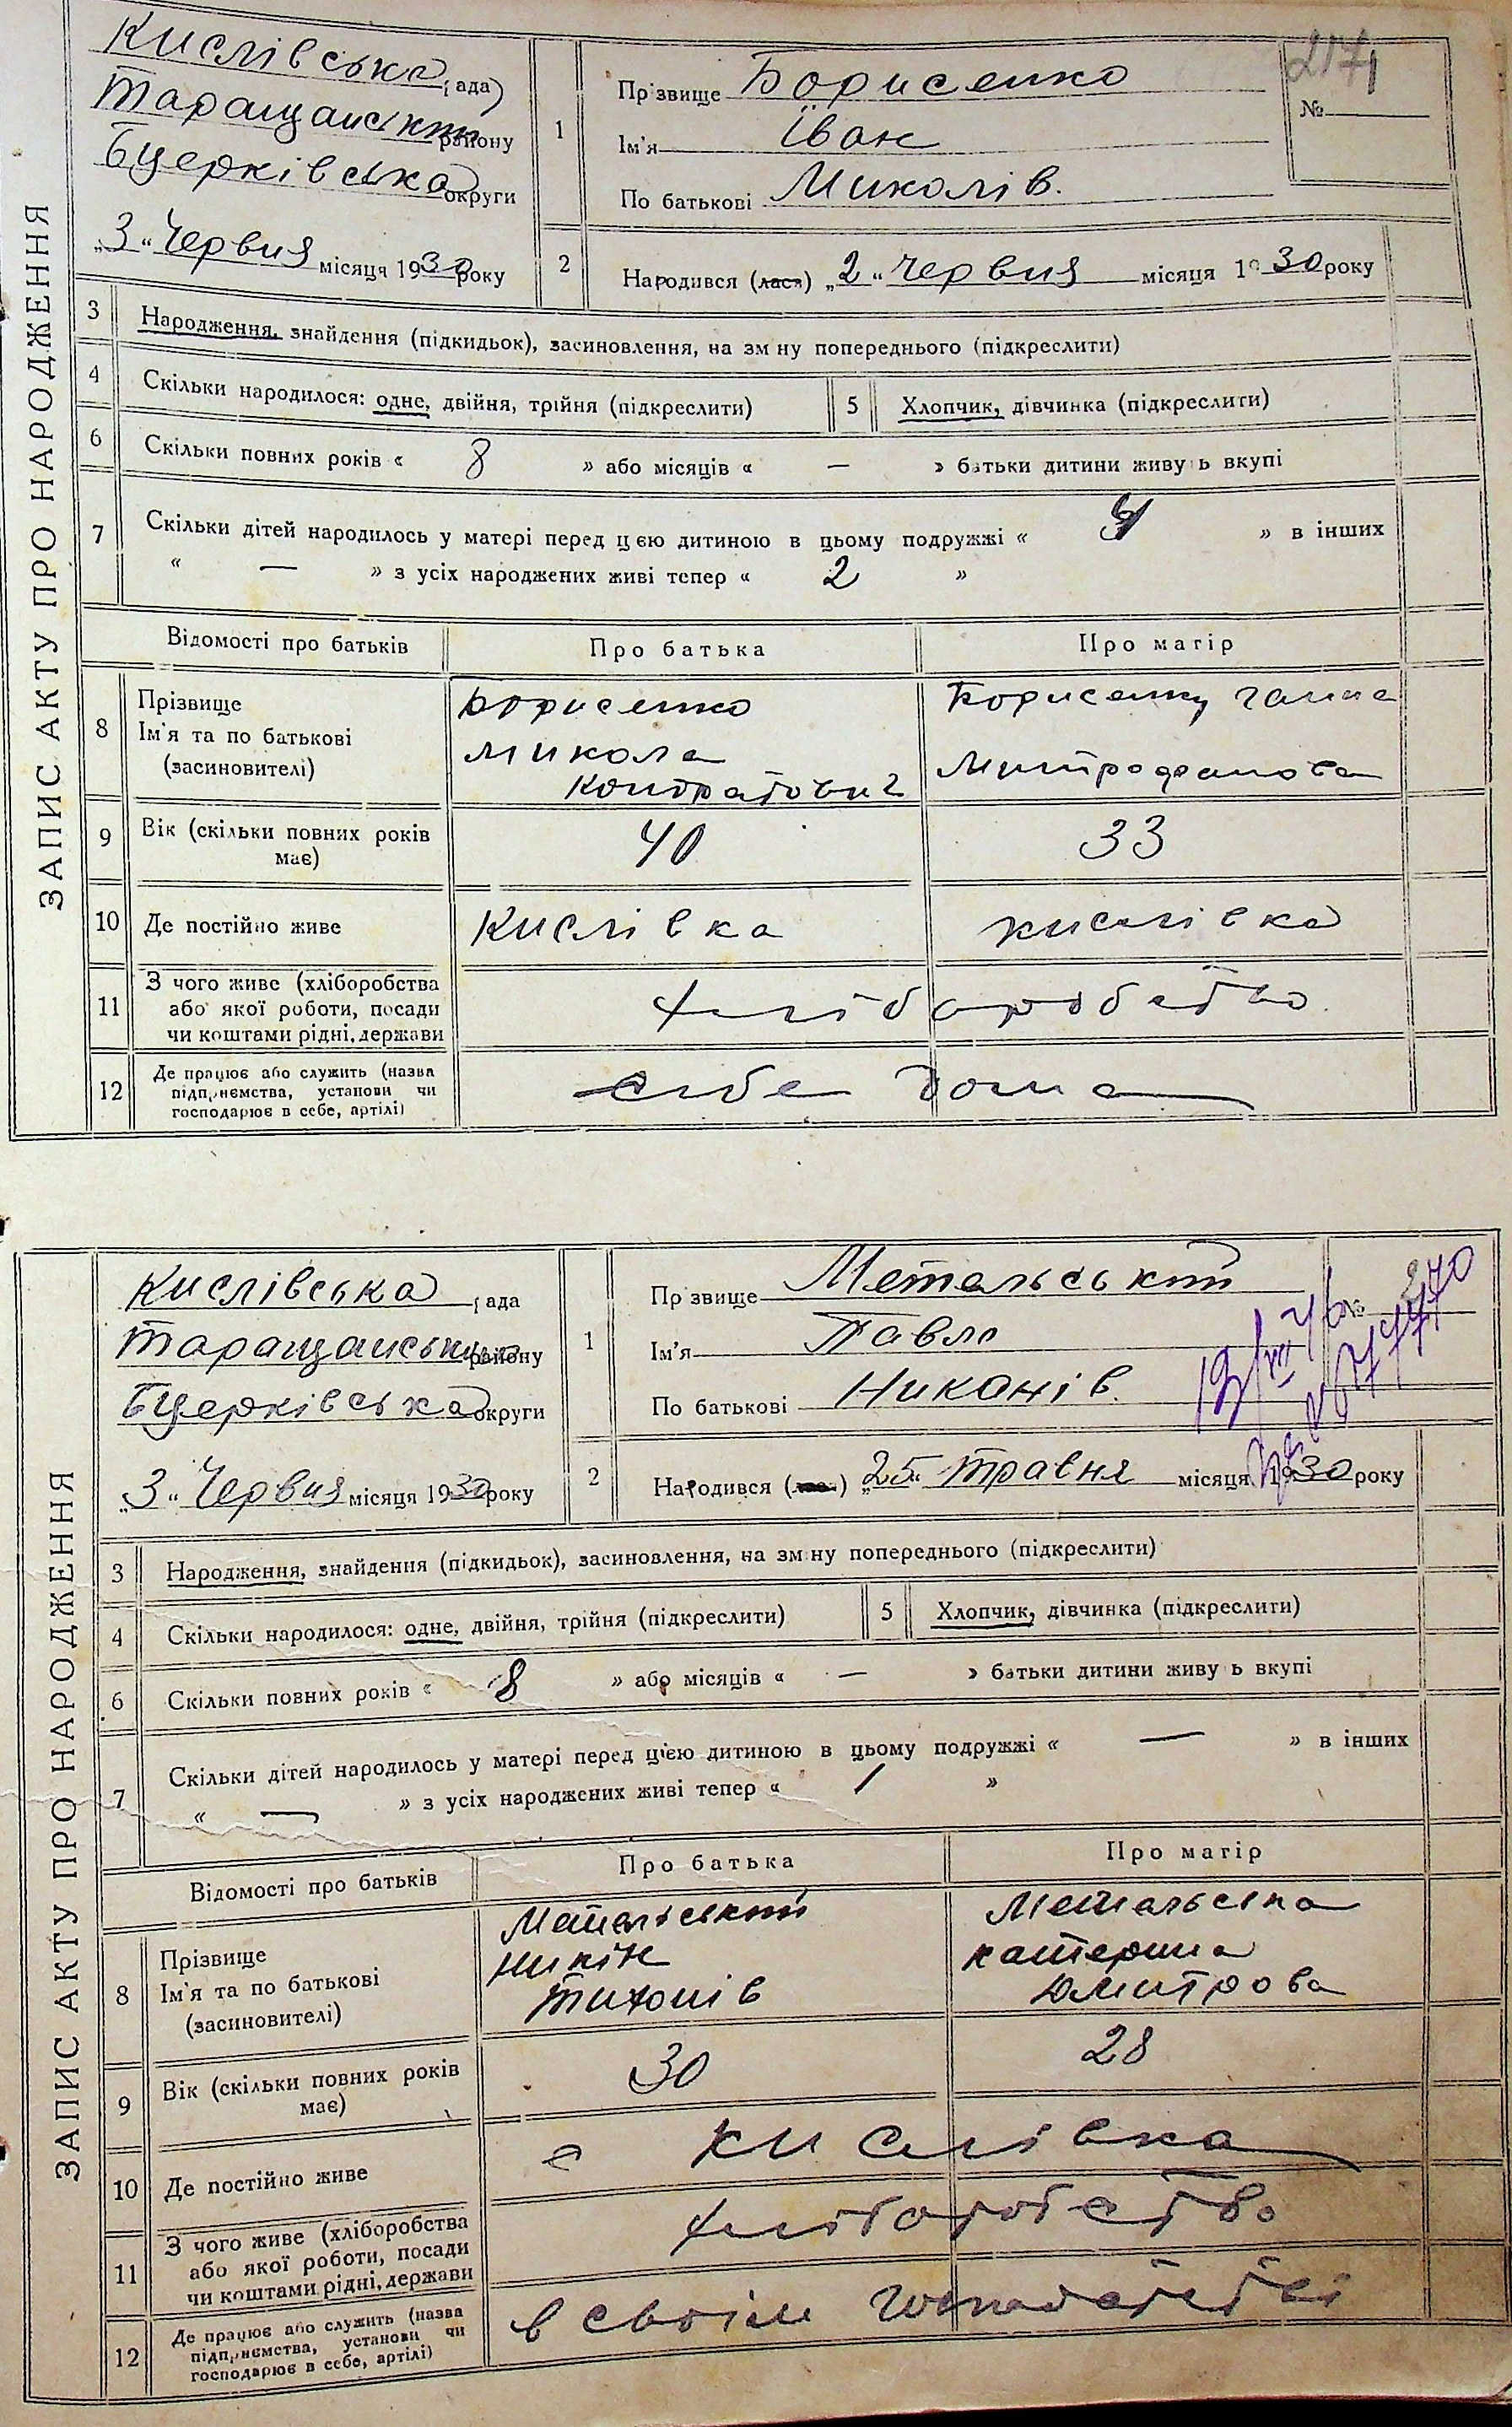 ЗАПИС АКТУ ПРО НАРОДЖЕННЯ
Кислівська рада
Таращанський району
Бцерківська округи
„3" Червня місяця 1930 року
1
Прізвище Борисенко
Ім'я Іван
По батькові Миколів.
271
№
2
Народився (лася) „2" Червня місяця 1930 року
3 Народження, знайдення (підкидьок), засиновлення, на зміну попереднього (підкреслити)
4 Скільки народилося: одне, двійня, трійня (підкреслити) 5 Хлопчик, дівчинка (підкреслити)
6 Скільки повних років « 8 » або місяців « — » батьки дитини живуть вкупі
7 Скільки дітей народилось у матері перед цією дитиною в цьому подружжі « » в інших
« — » з усіх народжених живі тепер « 2 »
Відомості про батьків Про батька Про матір
8 Прізвище
Ім'я та по батькові
(засиновителі)
Борисенко
Микола
Кондратович
Борисенко ганна
Митрофанова
9 Вік (скільки повних років має) 40 33
10 Де постійно живе Кислівка кислівка
11 З чого живе (хліборобства
або якої роботи, посади
чи коштами рідні, держави
хліборобство
12 Де працює або служить (назва
підприємства, установи чи
господарює в себе, артілі)
себе дома
ЗАПИС АКТУ ПРО НАРОДЖЕННЯ
Кислівська рада
Таращанський району
Бцерківська округи
„3" Червня місяця 1930 року
1
Прізвище Метальський
Ім'я Павло
По батькові Никонів.
№
2
Народився ( ) „25" травня місяця 1930 року
3 Народження, знайдення (підкидьок), засиновлення, на зміну попереднього (підкреслити)
4 Скільки народилося: одне, двійня, трійня (підкреслити) 5 Хлопчик, дівчинка (підкреслити)
6 Скільки повних років « 8 » або місяців « — » батьки дитини живуть вкупі
7 Скільки дітей народилось у матері перед цією дитиною в цьому подружжі « — » в інших
« — » з усіх народжених живі тепер « 1 »
Відомості про батьків Про батька Про матір
8 Прізвище
Ім'я та по батькові
(засиновителі)
Метальський
Никін
Тихонів
Метальська
катерина
Дмитрова
9 Вік (скільки повних років має) 30 28
10 Де постійно живе с кислівка
11 З чого живе (хліборобства
або якої роботи, посади
чи коштами рідні, держави
хліборобство
12 Де працює або служить (назва
підприємства, установи чи
господарює в себе, артілі)
в своім